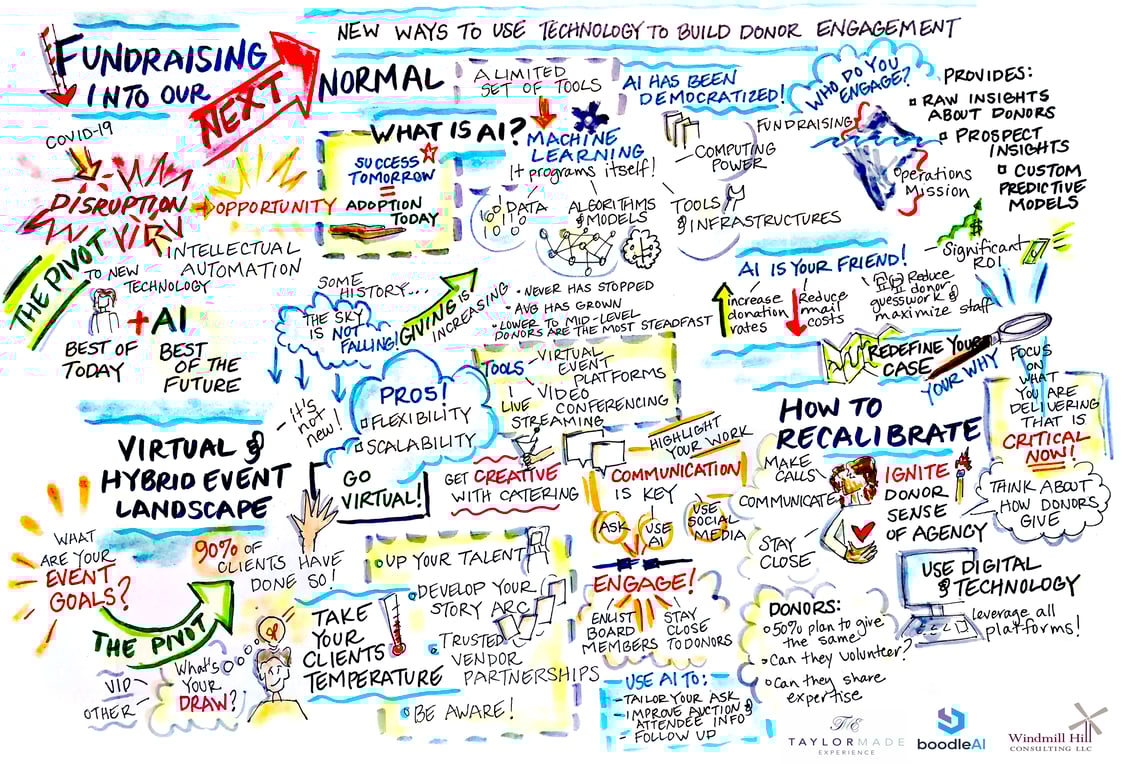 NEW WAYS TO USE TECHNOLOGY TO BUILD DONOR ENGAGEMENT
FUNDRAISING
INTO OUR
NEXT
NORMAL
COVID-19
DISRUPTION
OPPORTUNITY
THE PIVOT
TO NEW
TECHNOLOGY
INTELLECTUAL
AUTOMATION
+ AI
BEST OF
TODAY
BEST
OF THE
FUTURE
A LIMITED
SET OF TOOLS
WHAT IS AI?
SUCCESS
TOMORROW
=
ADOPTION
TODAY
MACHINE
LEARNING
It programs itself!
DATA
ALGORITHMS
& MODELS
TOOLS
& INFRASTRUCTURES
AI HAS BEEN
DEMOCRATIZED!
COMPUTING
POWER
WHO DO YOU
ENGAGE?
FUNDRAISING
Operations
Mission
PROVIDES:
RAW INSIGHTS
ABOUT DONORS
PROSPECT
INSIGHTS
CUSTOM
PREDICTIVE
MODELS
$
Significant
ROI
AI IS YOUR FRIEND!
increase
donation
rates
Reduce
mail
costs
Reduce
donor
guesswork &
maximize staff
SOME
HISTORY...
THE SKY
IS NOT
FALLING!
GIVING IS
INCREASING
• NEVER HAS STOPPED
• AVG HAS GROWN
• LOWER TO MID-LEVEL
DONORS ARE THE MOST STEADFAST
VIRTUAL &
HYBRID EVENT
LANDSCAPE
it's
not
new!
PROS!
FLEXIBILITY
SCALABILITY
GO
VIRTUAL!
TOOLS
VIRTUAL
EVENT
PLATFORMS
VIDEO
CONFERENCING
LIVE
STREAMING
GET CREATIVE
WITH CATERING
90% OF
CLIENTS HAVE
DONE SO!
WHAT
ARE YOUR
EVENT
GOALS?
THE PIVOT
What's
YOUR
DRAW?
VIP
OTHER
TAKE
YOUR
CLIENTS
TEMPERATURE
UP YOUR TALENT
DEVELOP YOUR
STORY ARC
TRUSTED
VENDOR
PARTNERSHIPS
BE AWARE!
HIGHLIGHT
YOUR WORK
COMMUNICATION
IS KEY
ASK
USE
AI
USE
SOCIAL
MEDIA
ENGAGE!
ENLIST
BOARD
MEMBERS
STAY
CLOSE
TO DONORS
USE AI TO:
- TAILOR YOUR ASK
- IMPROVE AUCTION &
ATTENDEE INFO
- FOLLOW UP
REDEFINE YOUR
CASE
YOUR WHY
FOCUS
ON
WHAT
YOU ARE
DELIVERING
THAT IS
CRITICAL
NOW!
HOW TO
RECALIBRATE
MAKE
CALLS
COMMUNICATE
STAY
CLOSE
IGNITE
DONOR
SENSE
OF AGENCY
THINK ABOUT
HOW DONORS
GIVE
USE DIGITAL
& TECHNOLOGY
leverage all
platforms!
DONORS:
• 50% plan to give
the same
• Can they volunteer?
• Can they share
expertise
TAYLORMADE
EXPERIENCE
boodleAI
Windmill Hill
CONSULTING LLC